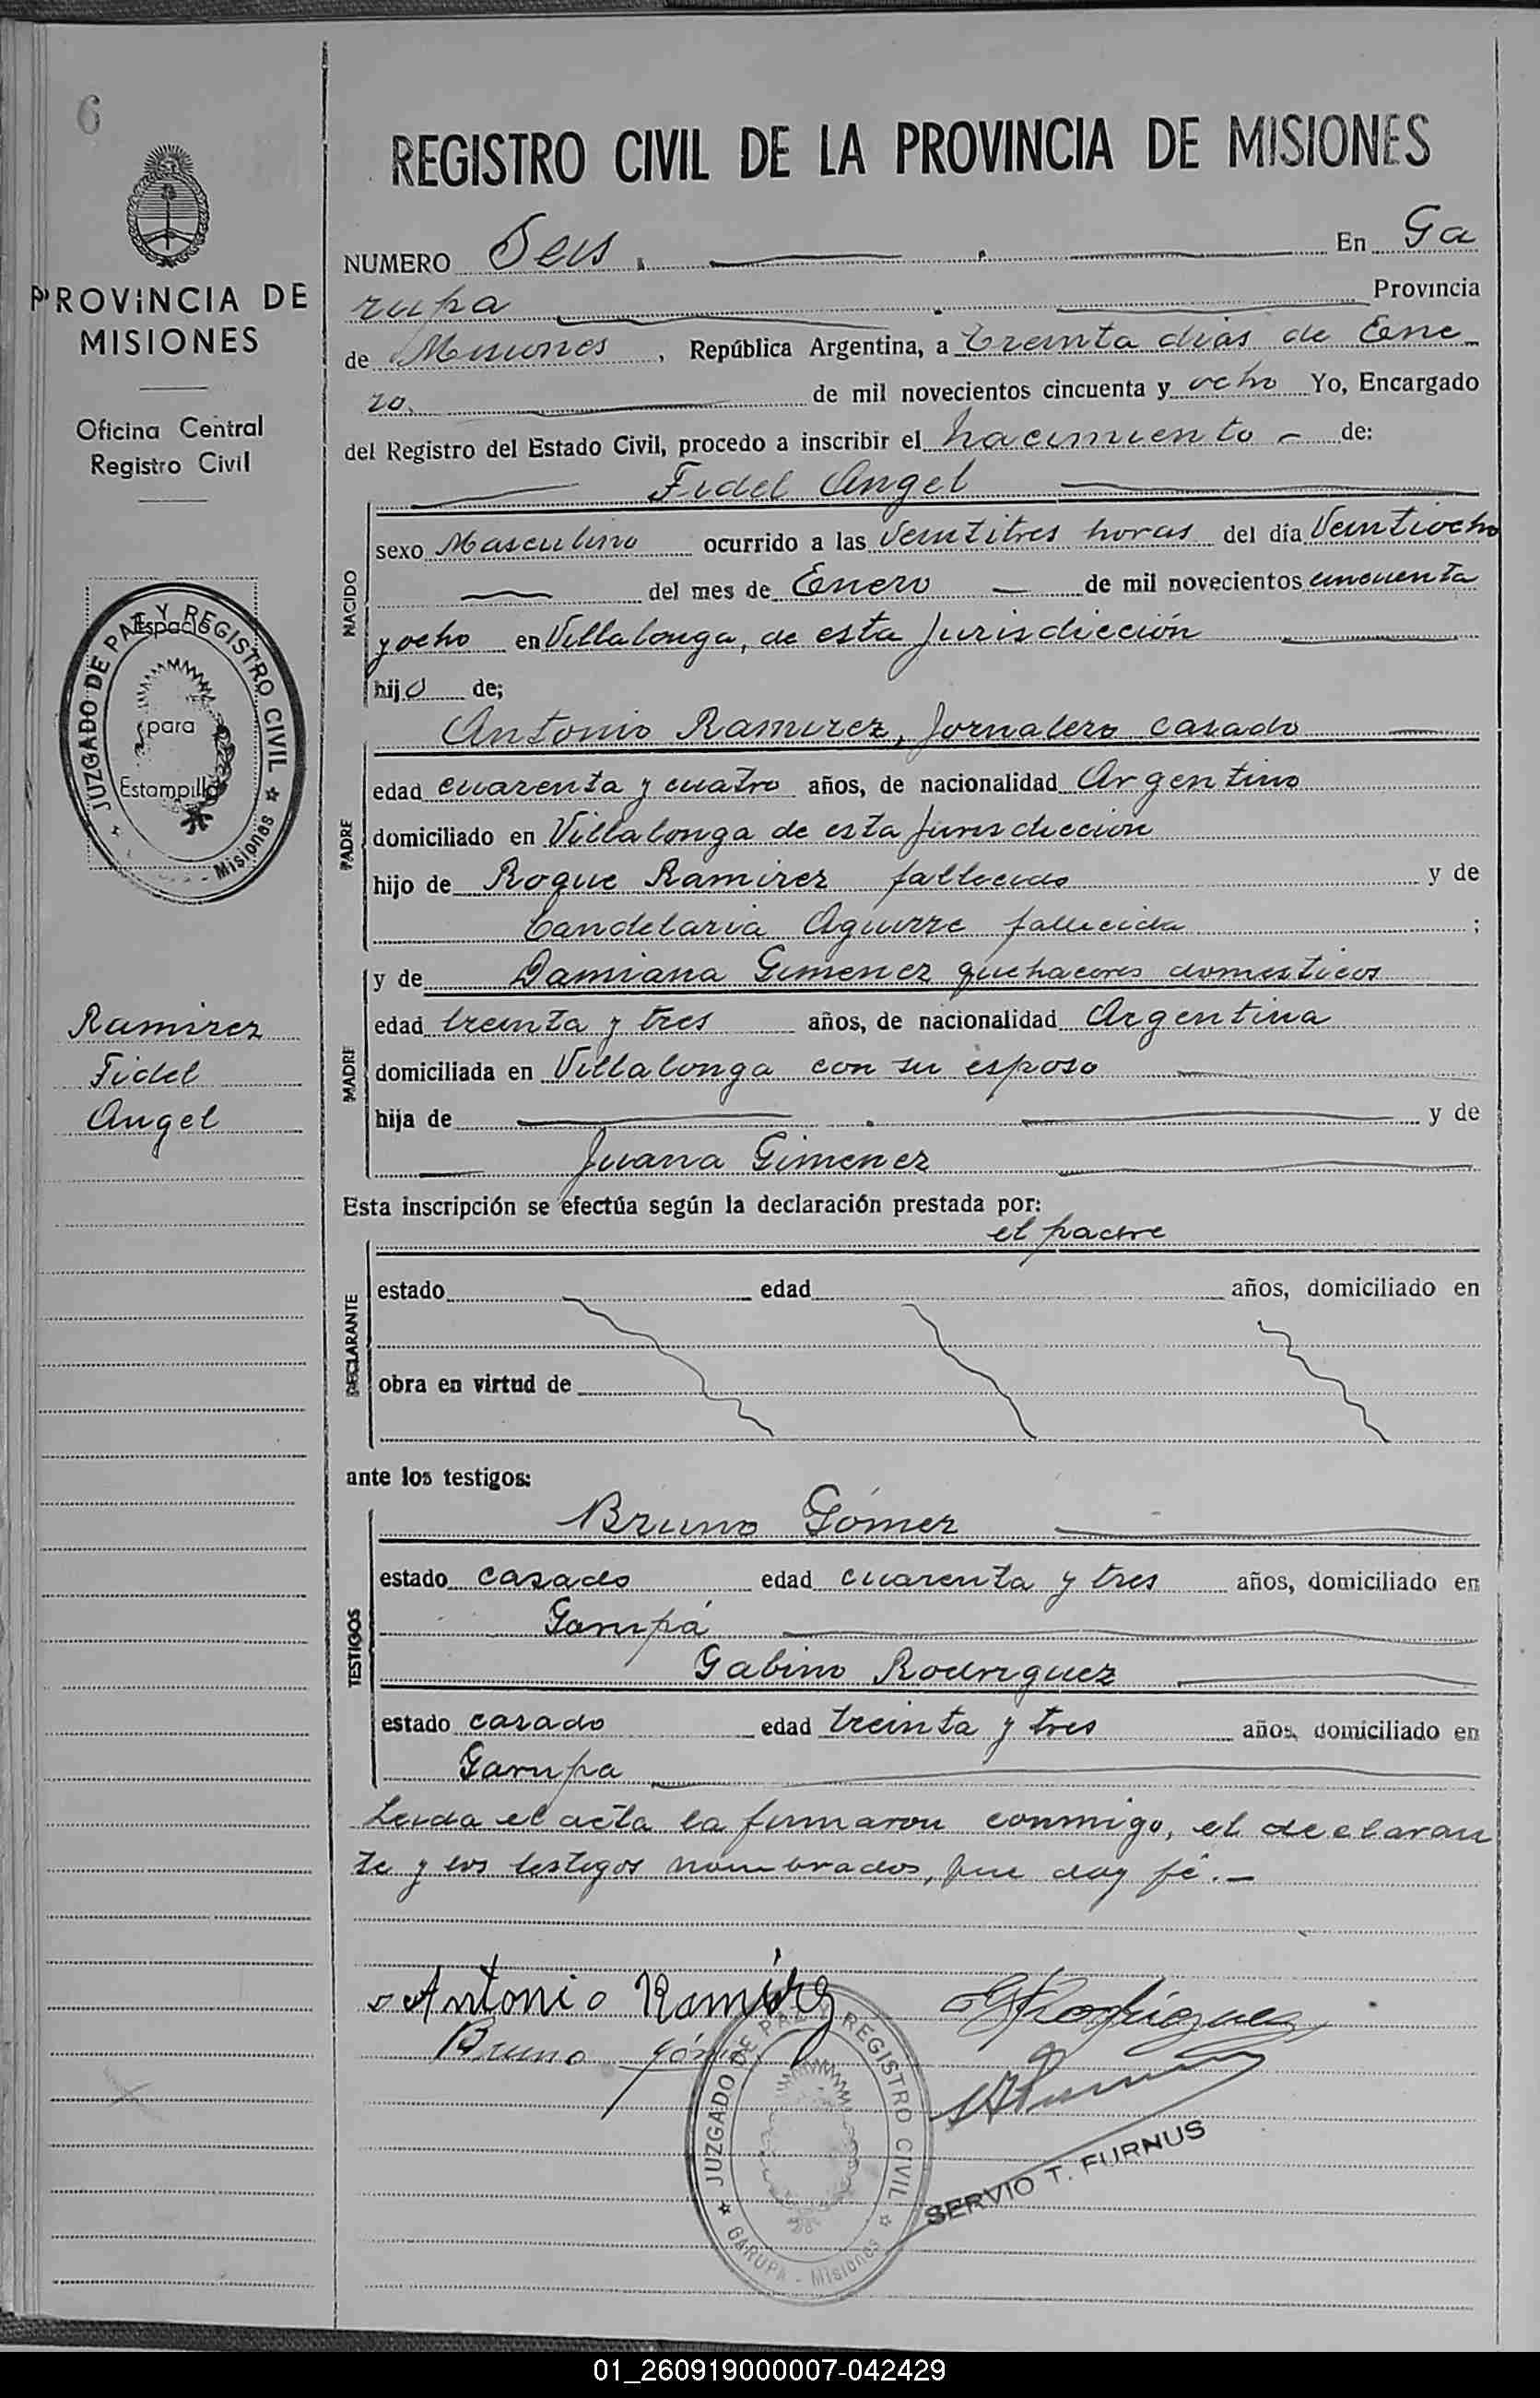 6
REGISTRO CIVIL DE LA PROVINCIA DE MISIONES
PROVINCIA DE
MISIONES
Oficina Central
Registro Civil
NUMERO Seis. En Ga
rupa Provincia
de Misiones, República Argentina, a treinta dias de Ene
ro. de mil novecientos cincuenta y ocho Yo, Encargado
del Registro del Estado Civil, procedo a inscribir el nacimiento de:
Fidel Angel
NACIDO
sexo Masculino ocurrido a las Veintitres horas del día Veintiocho
del mes de Enero de mil novecientos cincuenta
y ocho en Villalonga, de esta Jurisdicción
hijo de;
JUZGADO DE PAZ Y REGISTRO CIVIL
Espacio
para
Estampilla
- Misiones
Antonio Ramirez, Jornalero casado
PADRE
edad cuarenta y cuatro años, de nacionalidad Argentino
domiciliado en Villalonga de esta Jurisdiccion
hijo de Roque Ramirez fallecido y de
Candelaria Aguirre fallecida ;
MADRE
y de Damiana Gimenez quehaceres domesticos
edad treinta y tres años, de nacionalidad Argentina
domiciliada en Villalonga con su esposo
hija de y de
Juana Gimenez
Ramirez
Fidel
Angel
Esta inscripción se efectúa según la declaración prestada por:
el padre
DECLARANTE
estado edad años, domiciliado en
obra en virtud de
ante los testigos:
TESTIGOS
Bruno Gómez
estado casado edad cuarenta y tres años, domiciliado en
Garupá
Gabino Rodriguez
estado casado edad treinta y tres años, domiciliado en
Garupa
Leida el acta la firmaron conmigo, el declaran
te y los testigos nombrados, que doy fé.-
Antonio Ramirez
GRodriguez
Bruno Gómez
JUZGADO DE PAZ Y REGISTRO CIVIL
GARUPA - Misiones
SERVIO T. FURNUS
01_260919000007-042429